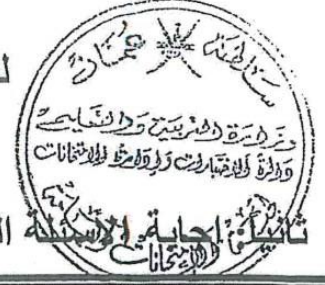 سلطنة عمان
وزارة التربية والتعليم
دائرة الاختبارات وإدارة الامتحانات
ثانيا: إجابة الأسئلة